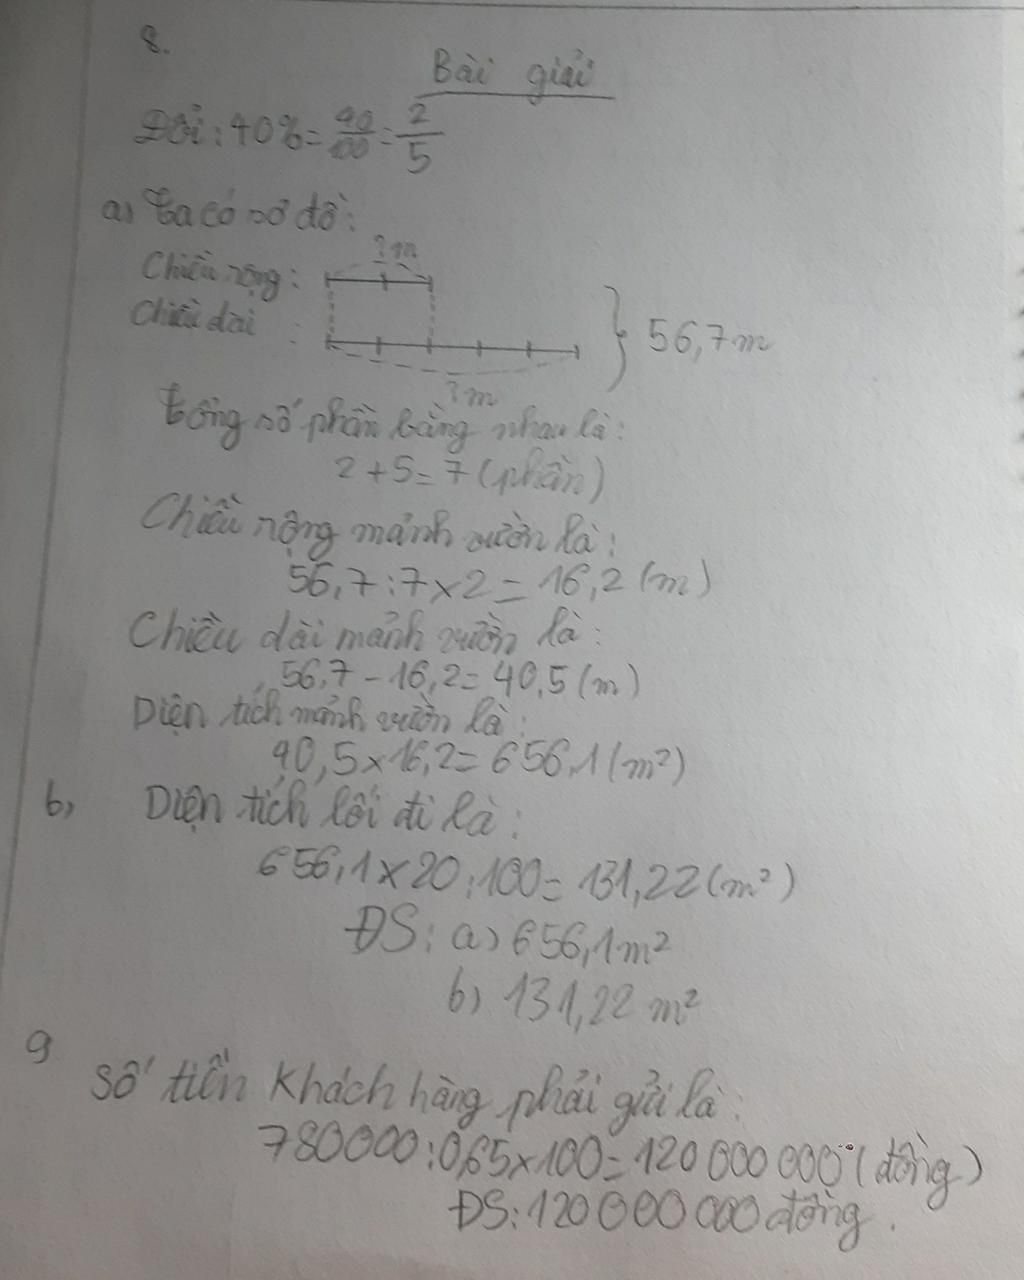 8.
Bài giải
Đổi: 40% = 40/100 = 2/5
a) Ta có sơ đồ:
? m
Chiều rộng:
Chiều dài :
56,7 m
? m
Tổng số phần bằng nhau là:
2 + 5 = 7 (phần)
Chiều rộng mảnh vườn là:
56,7 : 7 x 2 = 16,2 (m)
Chiều dài mảnh vườn là:
56,7 - 16,2 = 40,5 (m)
Diện tích mảnh vườn là:
40,5 x 16,2 = 656,1 (m²)
b, Diện tích lối đi là:
656,1 x 20 : 100 = 131,22 (m²)
ĐS: a) 656,1 m²
b) 131,22 m²
9
Số tiền khách hàng phải gửi là:
780000 : 0,65 x 100 = 120 000 000 (đồng)
ĐS: 120 000 000 đồng.